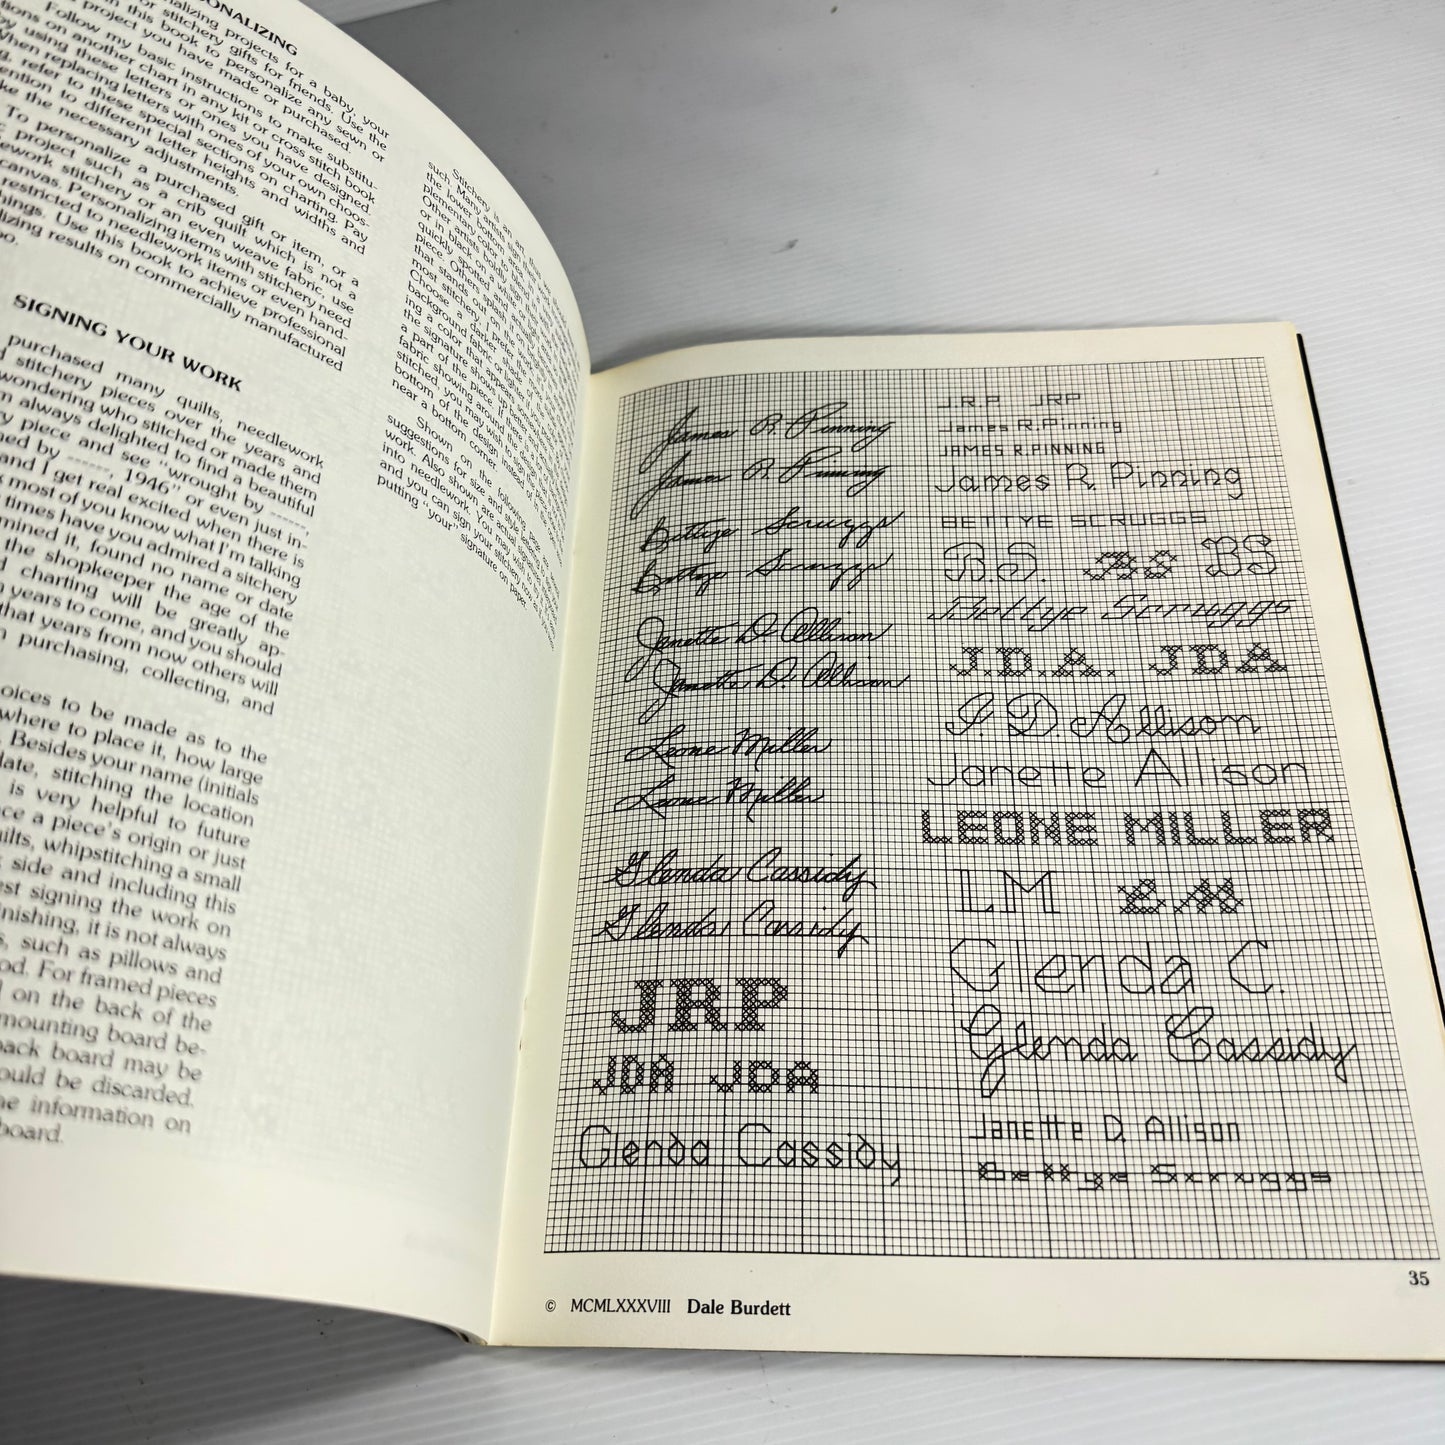 SONALIZING
nalizing projects for a baby, your
or stitchery gifts for friends. Use the
in this book to personalize any sewn or
project you have made or purchased.
Follow my basic instructions to make substitu-
tions on another chart in any kit or cross stitch book
by using these letters or ones you have designed.
When replacing letters with ones of your own choos-
ng, refer to these special sections on charting. Pay
ention to different letter heights and widths and
ke the necessary adjustments.
To personalize a purchased gift or item, or a
project such as a crib quilt which is not a
ework stitchery or an even weave fabric, use
canvas. Personalizing items with stitchery need
restricted to needlework items or even hand-
hings. Use this book to achieve professional
lizing results on commercially manufactured
oo.
SIGNING YOUR WORK
purchased many quilts, needlework
d stitchery pieces over the years and
wondering who stitched or made them
m always delighted to find a beautiful
ry piece and see "wrought by ------,
ned by ------, 1946" or even just in-
and I get real excited when there is
k most of you know what I'm talking
times have you admired a stitchery
mined it, found no name or date
the shopkeeper the age of the
d charting will be greatly ap-
n years to come, and you should
that years from now others will
n purchasing, collecting, and
oices to be made as to the
where to place it, how large
. Besides your name (initials
date, stitching the location
is very helpful to future
ce a piece's origin or just
uilts, whipstitching a small
k side and including this
est signing the work on
nishing, it is not always
s, such as pillows and
od. For framed pieces
d on the back of the
mounting board be-
back board may be
ould be discarded.
he information on
board.
Stitchery is an art
such. Many artists
the lower bottom
plementary colors to
Other artists boldly
or in black on a
quickly spotted and
piece. Others splash
that stands out
most stitchery, I prefer
Choose a darker
background fabric or
ing a color
the signature
a part of the
fabric showing around the
stitched, you may wish
bottom of the design
near a bottom corner
Shown on the following
suggestions for size and style
work. Also shown are actual signatures
into needlework. You may
and you can sign your stitchery
putting "your" signature on paper.
James R. Pinning
James R. Pinning
Bettye Scruggs
Bettye Scruggs
Janette D. Allison
Janette D. Allison
Leone Miller
Leone Miller
Glenda Cassidy
Glenda Cassidy
JRP
JDA JDA
Glenda Cassidy
J.R.P. JRP
James R. Pinning
JAMES R. PINNING
James R. Pinning
BETTYE SCRUGGS
B.S. BS BS
Bettye Scruggs
J.D.A. JDA
J. D. Allison
Janette Allison
LEONE MILLER
LM LM
Glenda C.
Glenda Cassidy
Janette D. Allison
Bettye Scruggs
35
© MCMLXXXVIII Dale Burdett